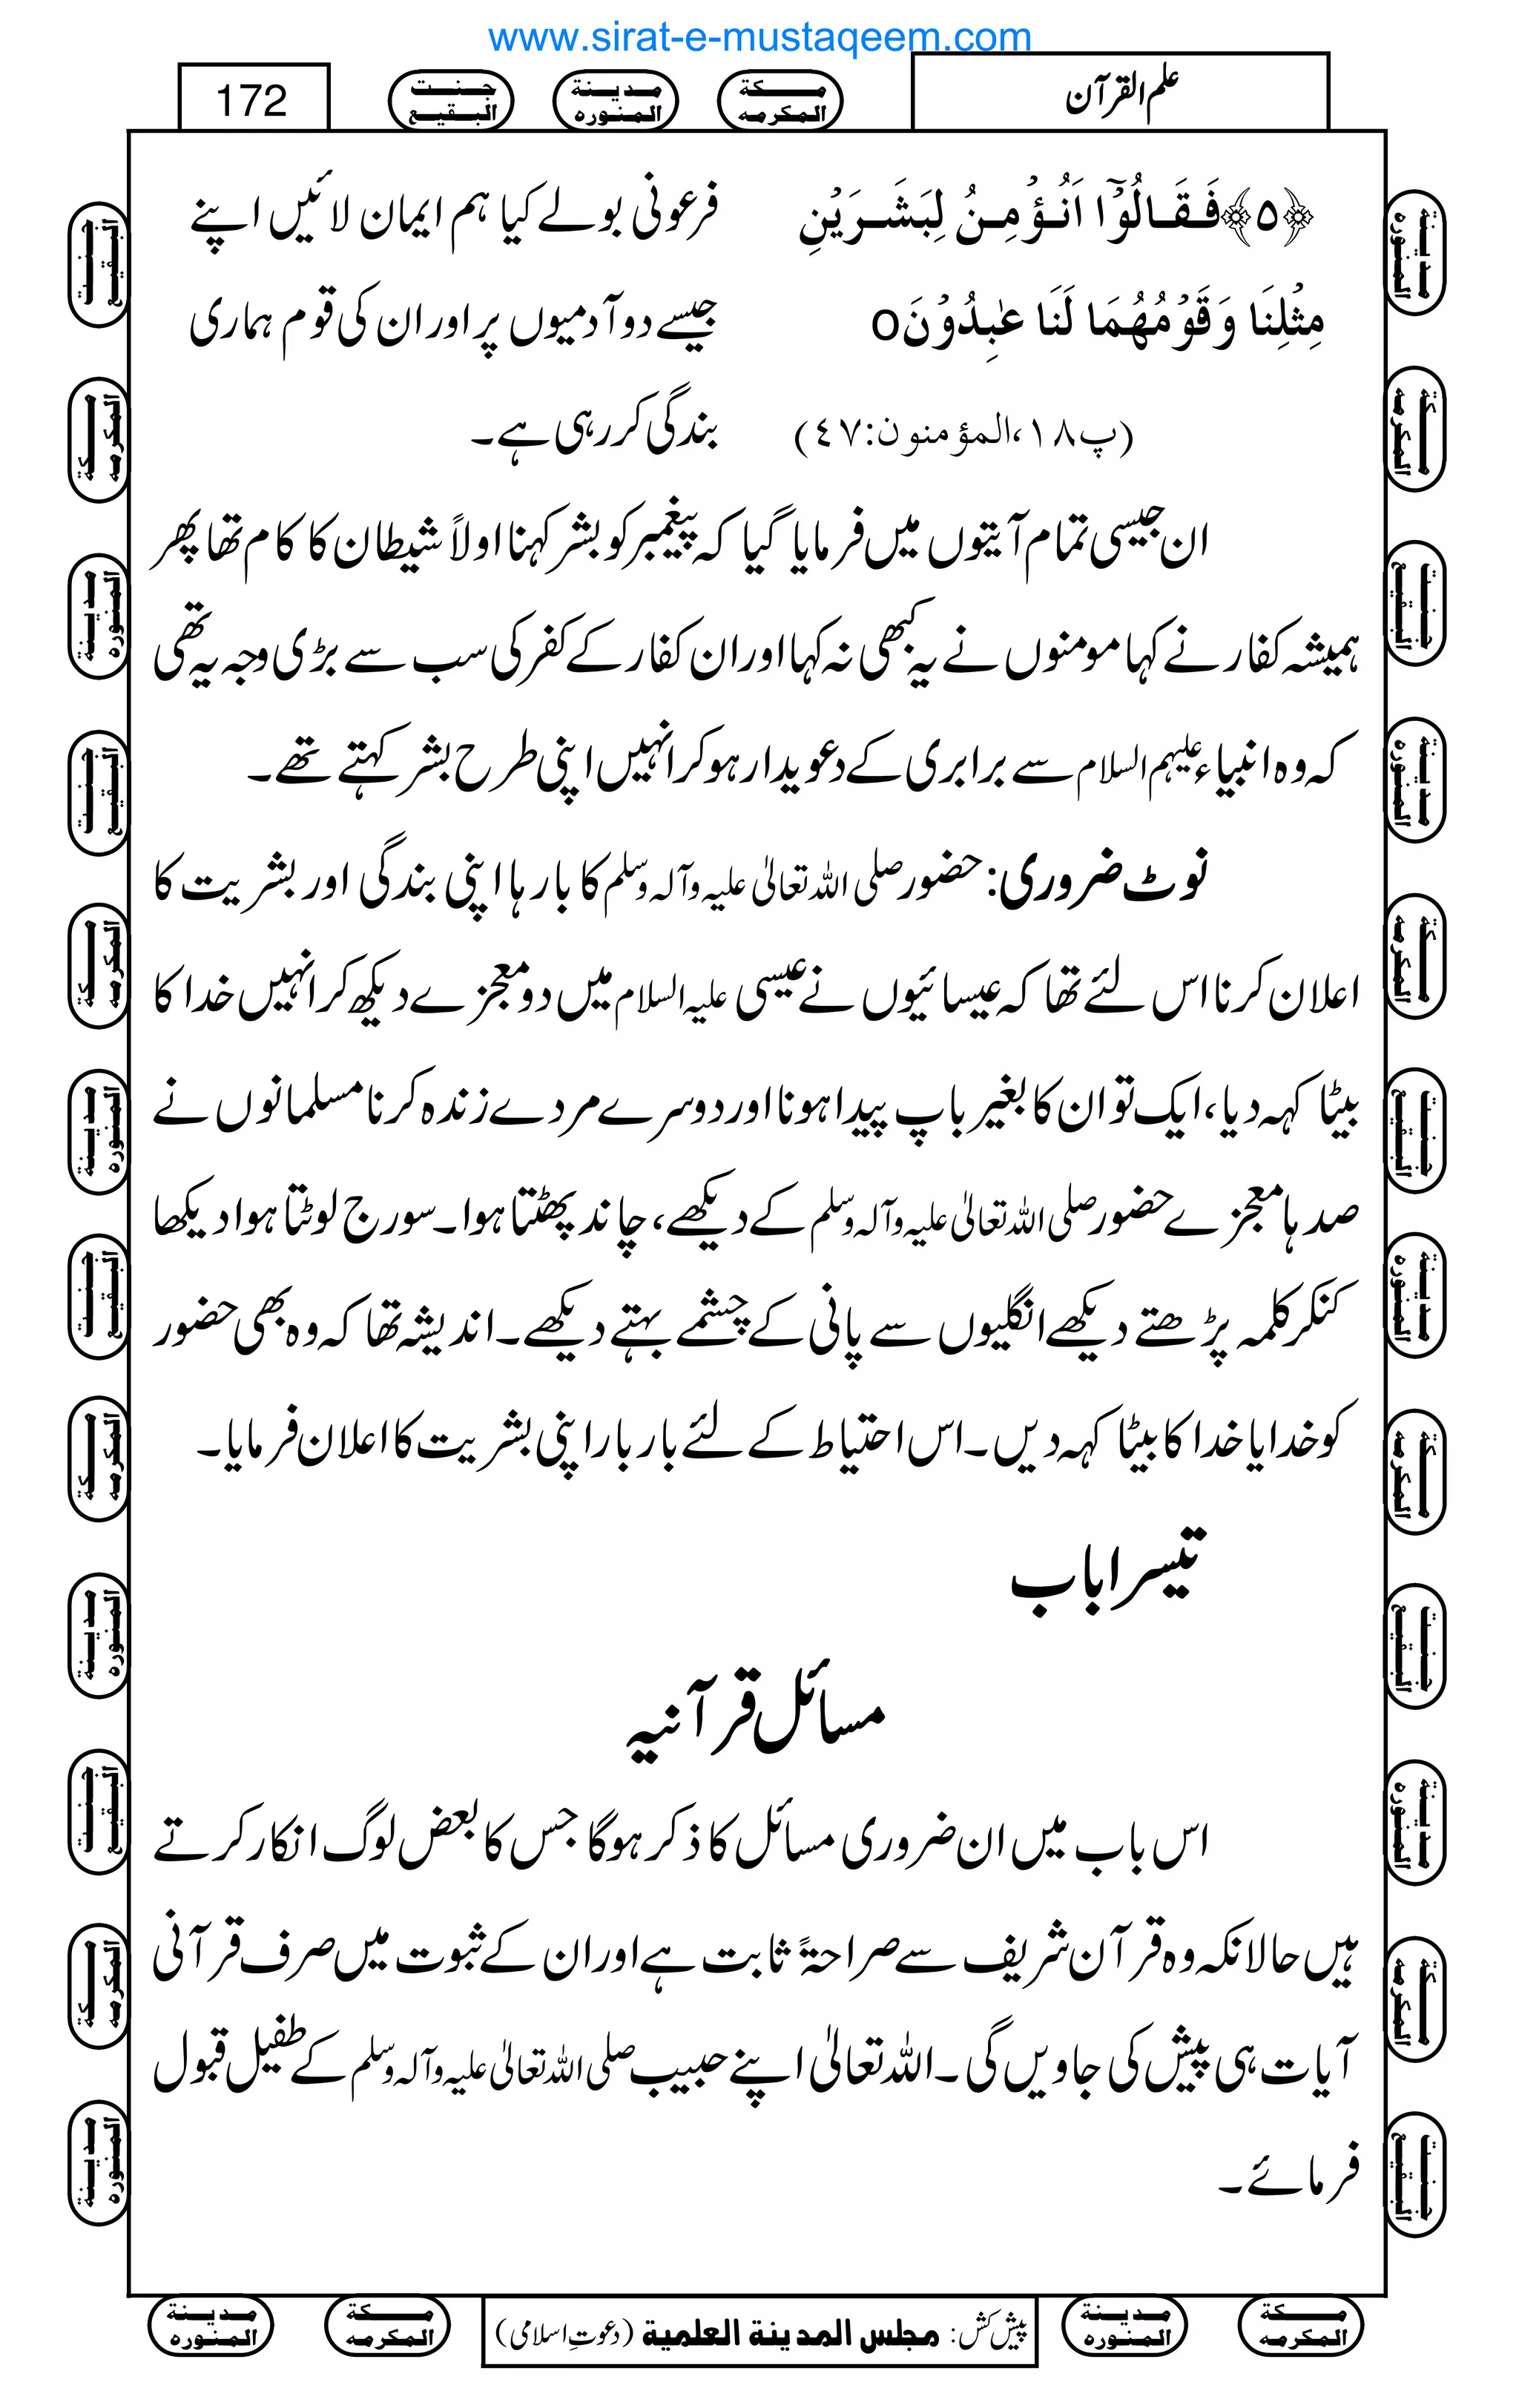 www.sirat-e-mustaqeem.com
علم القرآن
مكة المكرمه
مدينة المنوره
جنت البقيع
172
﴿٥﴾ فَقَالُوْۤا اَنُؤْمِنُ لِبَشَرَيْنِ
مِثْلِنَا وَ قَوْمُهُمَا لَنَا عٰبِدُوْنَ o
(پ١٨،المؤمنون:٤٧)
فرعونی بولے کیا ہم ایمان لائیں اپنے
جیسے دو آدمیوں پر اور ان کی قوم ہماری
بندگی کر رہی ہے۔
ان جیسی تمام آیتوں میں فرمایا گیا کہ پیغمبر کو بشر کہنا اولاً شیطان کا کام تھا پھر
ہمیشہ کفار نے کہا مومنوں نے یہ کبھی نہ کہا اور ان کفار کے کفر کی سب سے بڑی وجہ یہ تھی
کہ وہ انبیاء علیہم السلام سے برابری کے دعویدار ہو کر انہیں اپنی طرح بشر کہتے تھے۔
نوٹ ضروری: حضور صلی اللہ تعالیٰ علیہ وآلہ وسلم کا بارہا اپنی بندگی اور بشریت کا
اعلان کرنا اس لئے تھا کہ عیسائیوں نے عیسیٰ علیہ السلام میں دو معجزے دیکھ کر انہیں خدا کا
بیٹا کہہ دیا، ایک تو ان کا بغیر باپ پیدا ہونا اور دوسرے مردے زندہ کرنا مسلمانوں نے
صدہا معجزے حضور صلی اللہ تعالیٰ علیہ وآلہ وسلم کے دیکھے، چاند پھٹتا ہوا۔ سورج لوٹتا ہوا دیکھا
کنکر کلمہ پڑھتے دیکھے انگلیوں سے پانی کے چشمے بہتے دیکھے۔ اندیشہ تھا کہ وہ بھی حضور
کو خدا یا خدا کا بیٹا کہہ دیں۔ اس احتیاط کے لئے بار بار اپنی بشریت کا اعلان فرمایا۔
تیسرا باب
مسائل قرآنیہ
اس باب میں ان ضروری مسائل کا ذکر ہو گا جس کا بعض لوگ انکار کرتے
ہیں حالانکہ وہ قرآن شریف سے صراحۃً ثابت ہے اور ان کے ثبوت میں صرف قرآنی
آیات ہی پیش کی جاویں گی۔ اللہ تعالیٰ اپنے حبیب صلی اللہ تعالیٰ علیہ وآلہ وسلم کے طفیل قبول
فرمائے۔
مكة المكرمه
مدينة المنوره
پیش کش: مجلس المدينة العلمية (دعوتِ اسلامی)
مكة المكرمه
مدينة المنوره